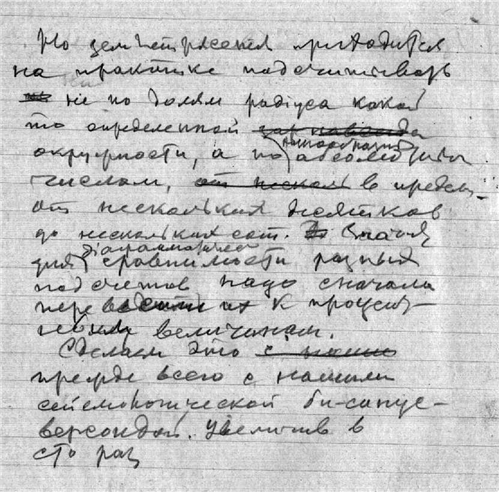 Но землетрясения приходится
на практике подсчитывать
не по долям радиуса какой
то определенной
окружности, а по абсолютным
числам, от нескол в предел.
от нескольких десятков
до нескольких сот. Значит
для сравнимости разных
подсчетов надо сначала
перевести их к процент-
ным величинам.
Сделаем это
прежде всего с нашими
сейсмологической би-синус-
версоидой. Увеличив в
сто раз